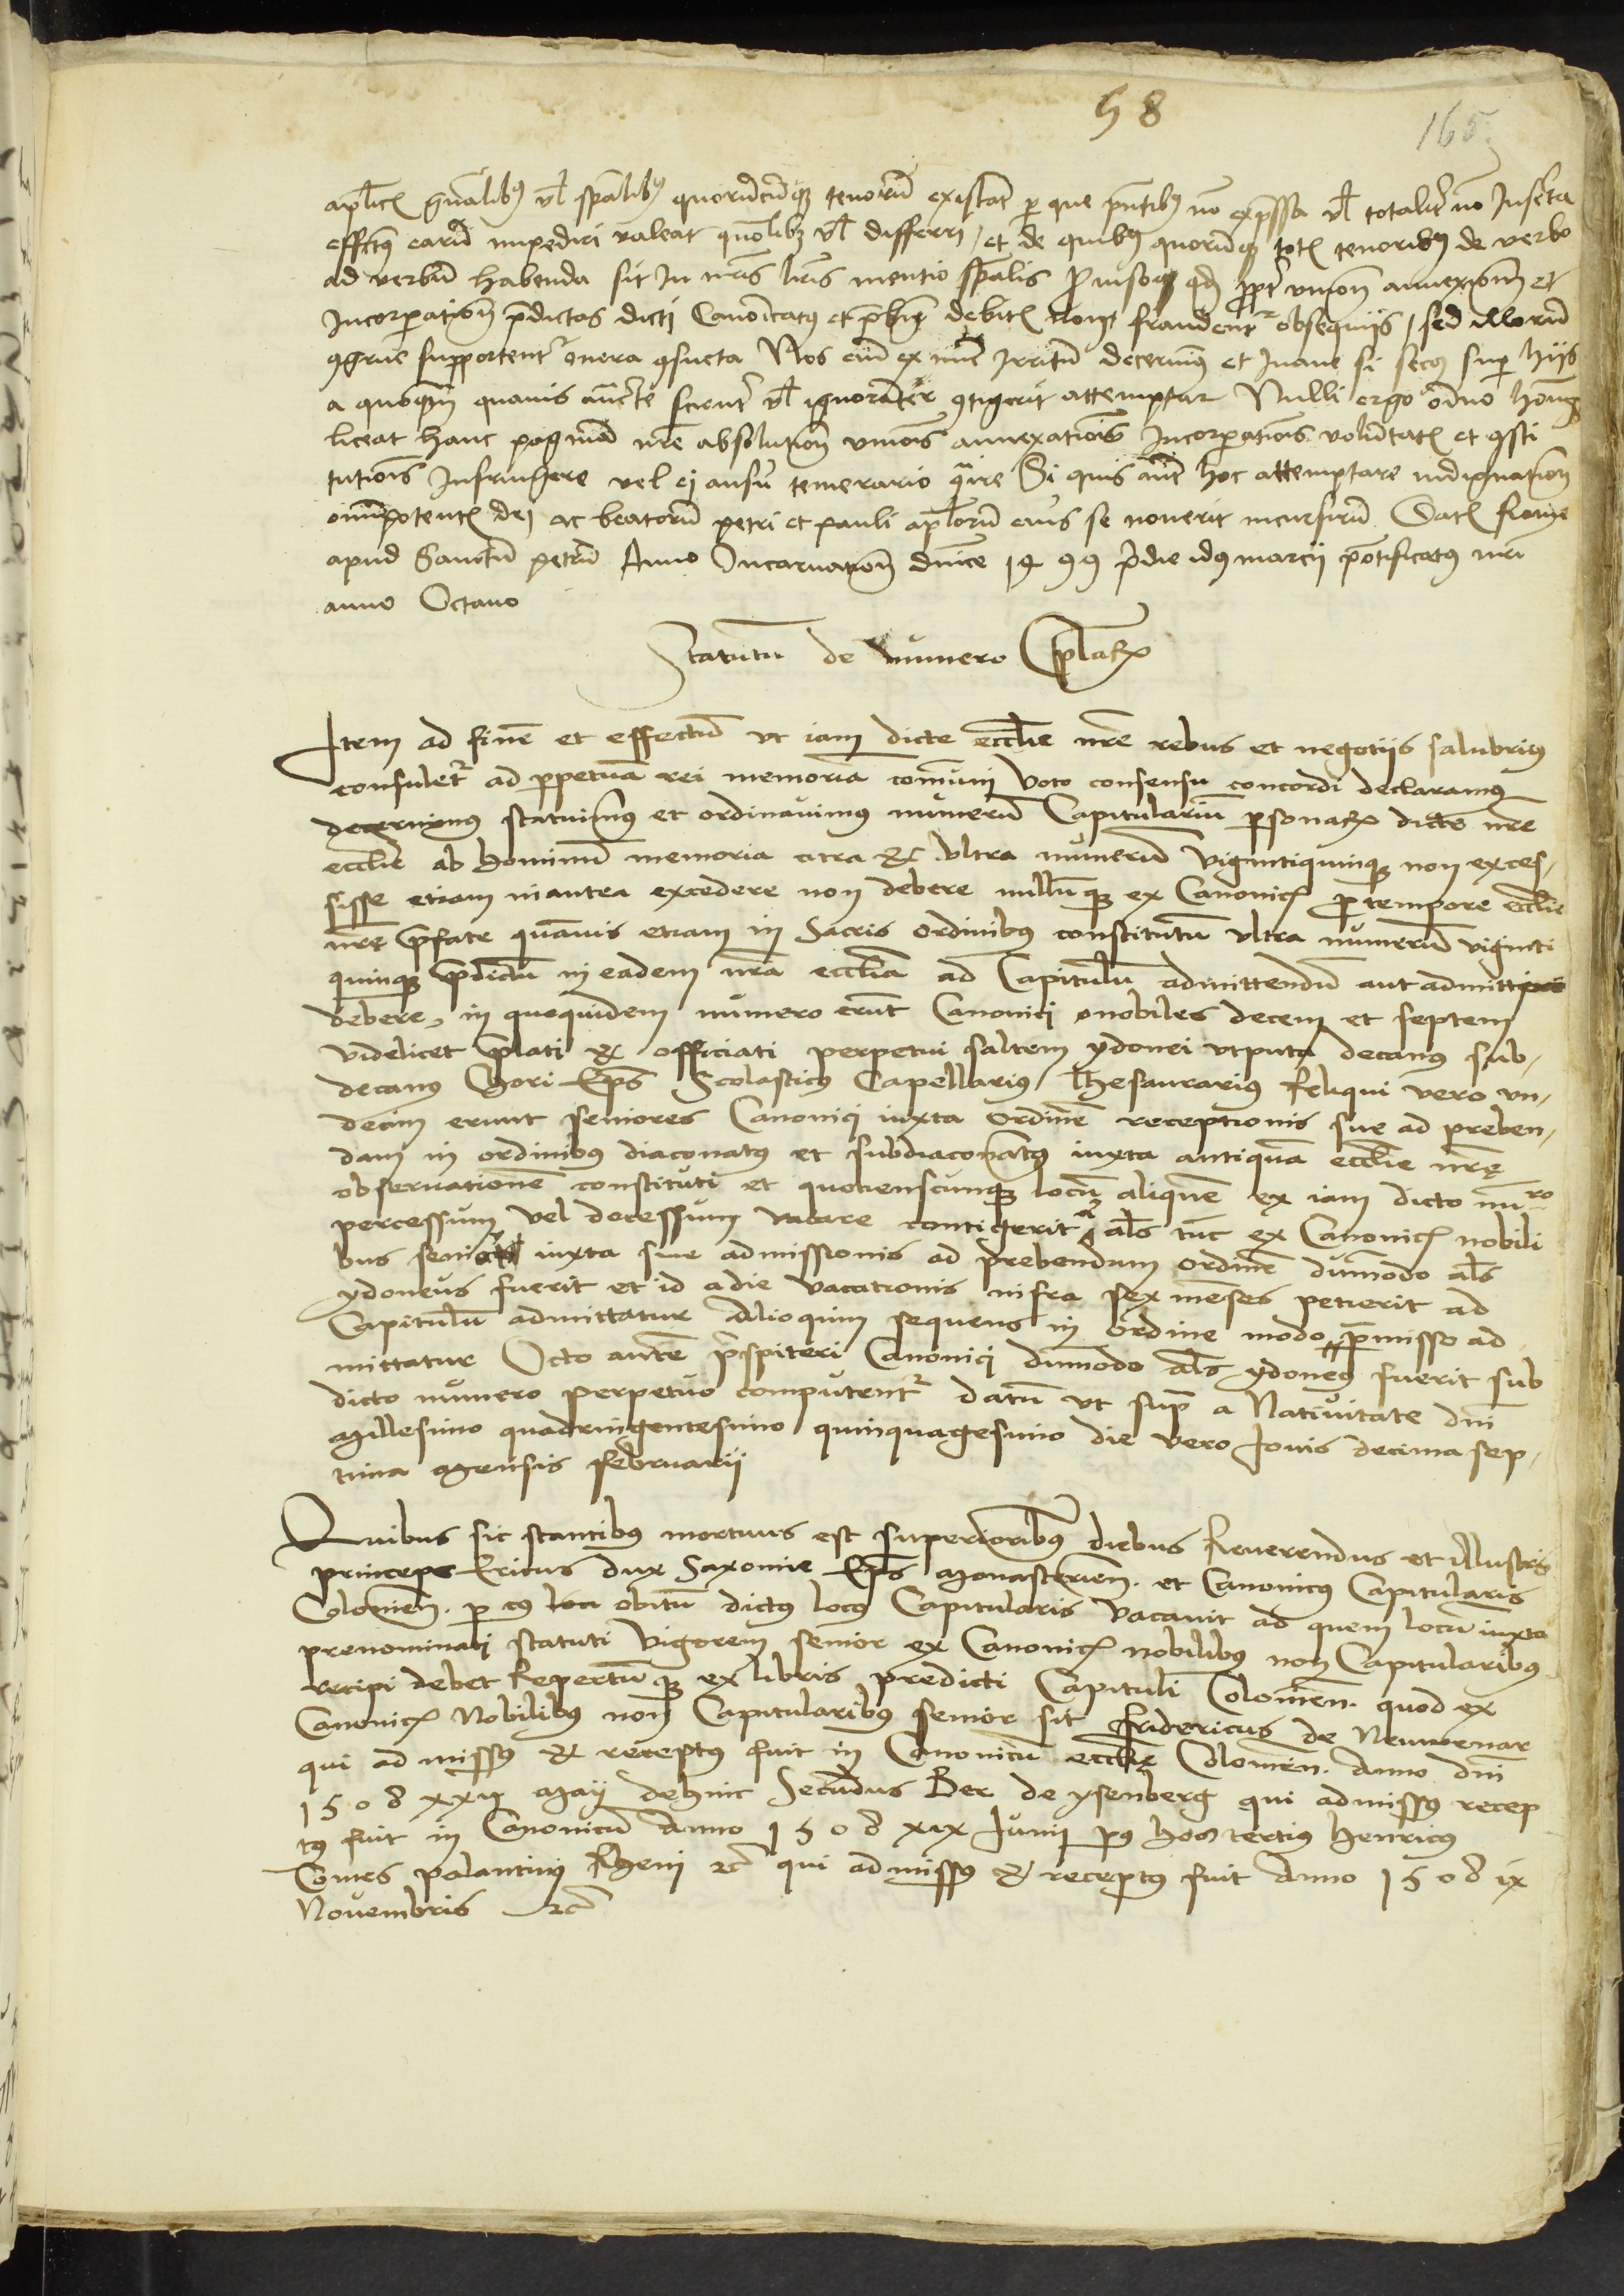 58
165
aplicis gnalibus vel spalibus quorumcumque tenorum existant per que pntibus non expressa vel totaliter non Inserta
effectus earum impediri valeat quomolibet vel differri, et de quibus quorumque totis tenoribus de verbo
ad verbum habenda sit In nris lris mentio spalis Proviso quod propter unionem annexionem et
Incorporationem predictas dicti Canonicatus et prebende debitis non fraudentur obsequijs, sed illorum
congrue supportentur onera consueta Nos eium ex nunc Irritum decernimus et Inane si secus super hijs
a quoquam quavis aucte scienter vel ignoranter contigerit attemptari Nulli ergo omnino hominum
liceat hanc paginam nre absolutionis unionis annexationis Incorporationis voluntatis et consti
tutionis Infringere vel ei ausu temerario contraire Si quis autem hoc attemptare indignationem
omnipotentis dei ac beatorum petri et pauli aplorum eius se noverit incursurum Datis Rome
apud Sanctum petrum Anno Incarnationis dnice 1499 pridie idus marcij pontificatus nri
anno Octavo
Statutum de numero Caplarium
Item ad finem et effectum ut iam dicte ecclie nre rebus et negotijs salubrius
consuletur ad perpetuam rei memoriam comuni voto consensu concordi declaramus
decernimus statuimus et ordinavimus numerum Capitularium personarum dicte nre
ecclie ab hominum memoria citra et ultra numerum vigintiquinque non exces,
sisse etiam inantea excedere non debere nullumque ex Canonicis pro tempore ecclie
nre prefate quamvis etiam in Sacris ordinibus constitutum ultra numerum viginti
quinque predictum in eadem nra ecclia ad Capitulum admittendum aut admitti
debere, in quoquidem numero erunt Canonici nobiles decem et septem
videlicet prelati et officiati perpetui saltem ydonei utputa decanus sub,
decanus Chori Eps Scolasticus Capellarius Thesaurarius Reliqui vero un,
decim erunt seniores Canonici iuxta ordinem receptionis sue ad preben,
dam in ordinibus diaconatus et subdiaconatus iuxta antiquam ecclie nre
observationem constituti et quotienscunque locum aliquem ex iam dicto numro
percessum vel decessum vacare contigerit als tunc ex Canonicis nobili
bus senior iuxta sue admissionis ad prebendam ordinem dummodo als
ydoneus fuerit et id a die vacationis infra sex menses petierit ad
Capitulum admittatur Alioquin sequens in ordine modo premisso ad,
mittatur Octo autem prespiteri Canonici dummodo als ydoneus fuerit sub
dicto numero perpetuo computentur datum ut supra a Nativitate dni
Millesimo quadringentesimo quinquagesimo die vero Jovis decima sep,
tima Mensis februarij
Quibus sic stantibus mortuus est superioribus diebus Reverendus et illustris
princeps Ericus dux Saxonie Eps Monasterien. et Canonicus Capitularis
Colonien. per cuius obitum dictus locus Capitularis vacavit ad quem locum iuxta
prenominati statuti vigorem senior ex Canonicis nobilibus non Capitularibus
recipi debet Repertumque ex libris predicti Capituli Colonien. quod ex
Canonicis Nobilibus non Capitularibus senior sit fridericus de Neuwenar
qui admissus et receptus fuit in Canonicum ecclie Colonien. Anno dni
1508 xxij Maij dehinc Secundus Ber de ysenberg qui admissus recep
tus fuit in Canonicum Anno 1508 xix Junij post hos tertius henricus
Comes palantinus Rheni etc qui admissus et receptus fuit Anno 1508 ix
Novembris etc